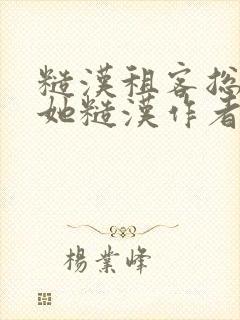 糙漢租客总
她糙漢作者
楊業峰